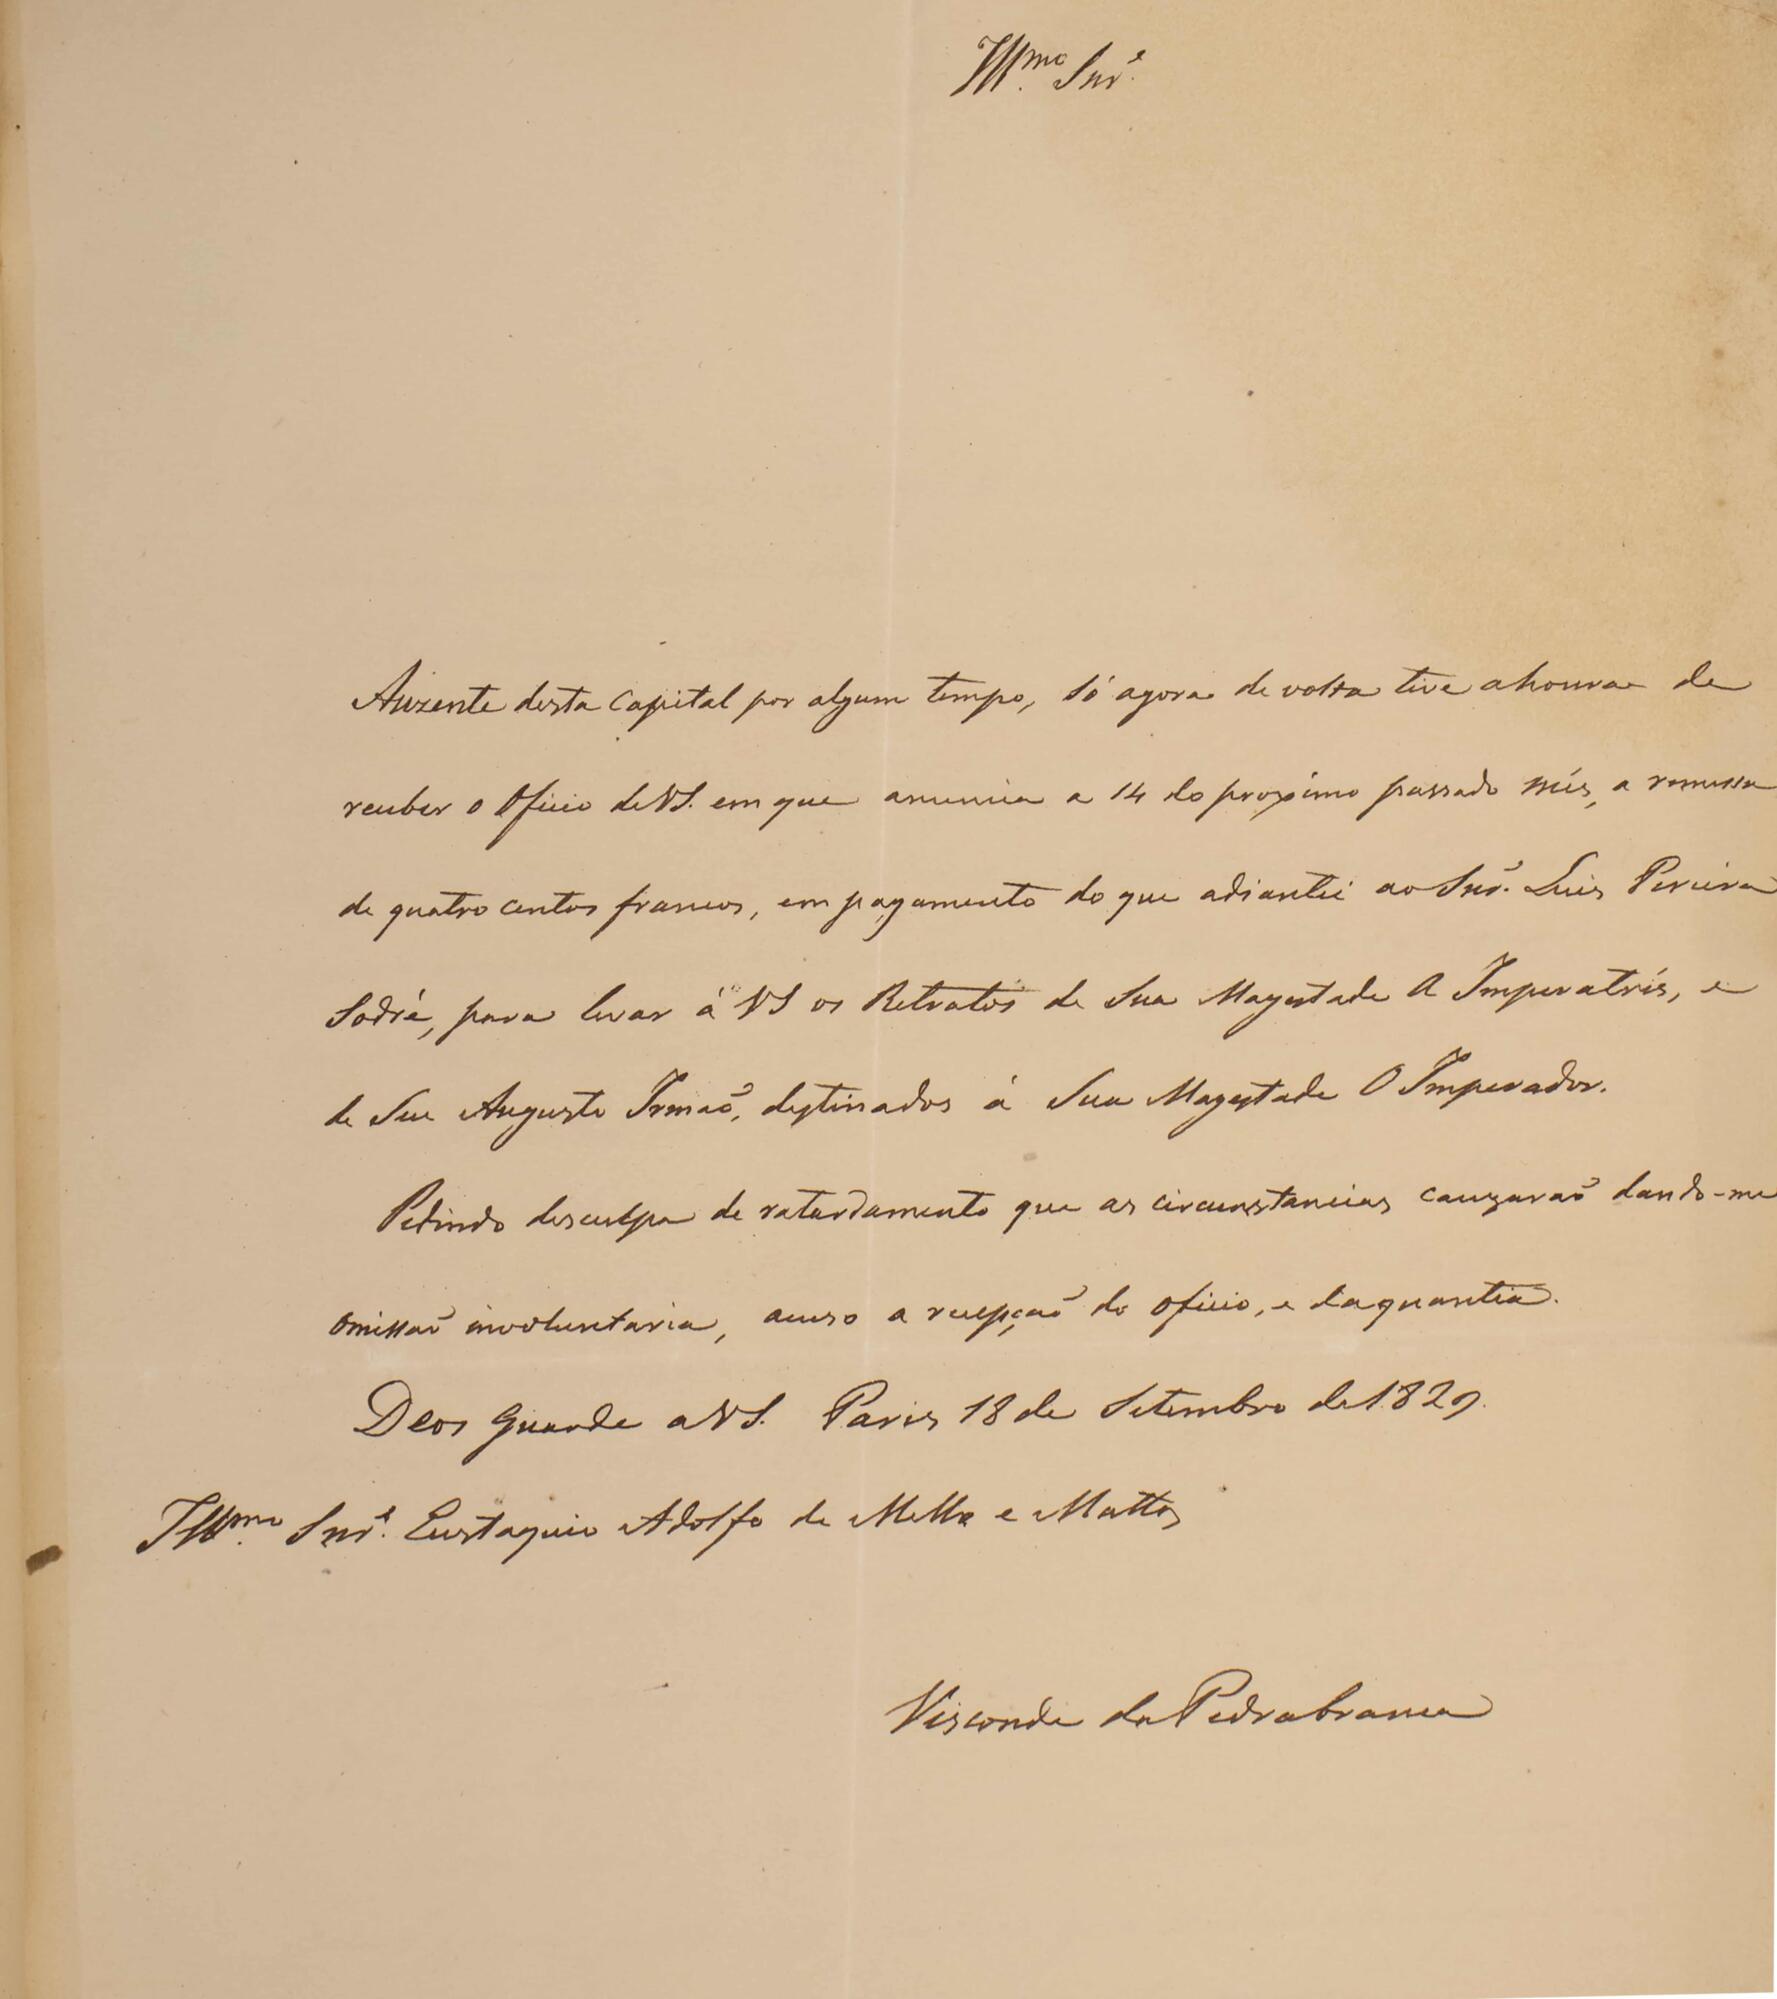 Illmo. Snr.e
Auzente desta Capital por algum tempo, só agora de volta tive a honra de
receber o Oficio de VS. em que anuncia a 14 do proximo passado mês, a remessa
de quatro centos francos, em pagamento do que adiantei ao Snr. Luis Pereira
Sodré, para levar á VS os Retratos de Sua Magestade A Imperatrís, e
de Seu Augusto Irmaõ, destinados á Sua Magestade O Imperador.
Pedindo desculpa de retardamento que as circunstancias cauzaraõ dando-me
omissaõ involuntaria, acuso a recepçaõ do oficio, e da quantia.
Deos Guarde a VS. Paris 18 de Setembro de 1829.
Illmo. Snr.e Eustaquio Adolfo de Mello e Mattos
Visconde da Pedrabranca